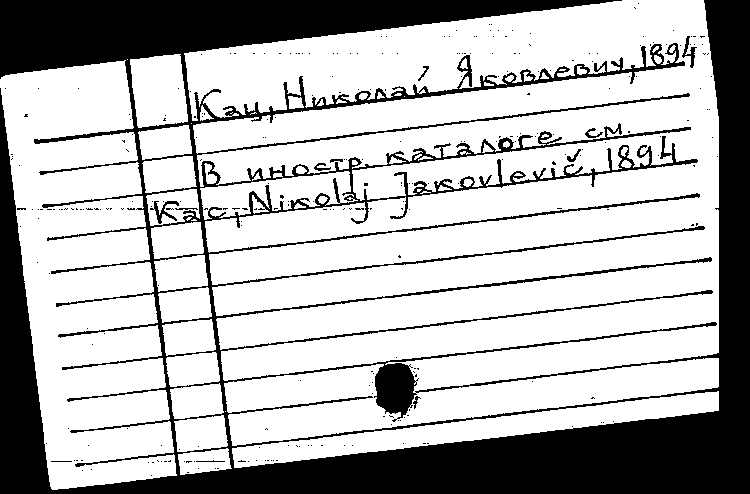 Кац, Николай Яковлевич, 1894
В иностр. каталоге см.
Kac, Nikolaj Jakovlevič, 1894